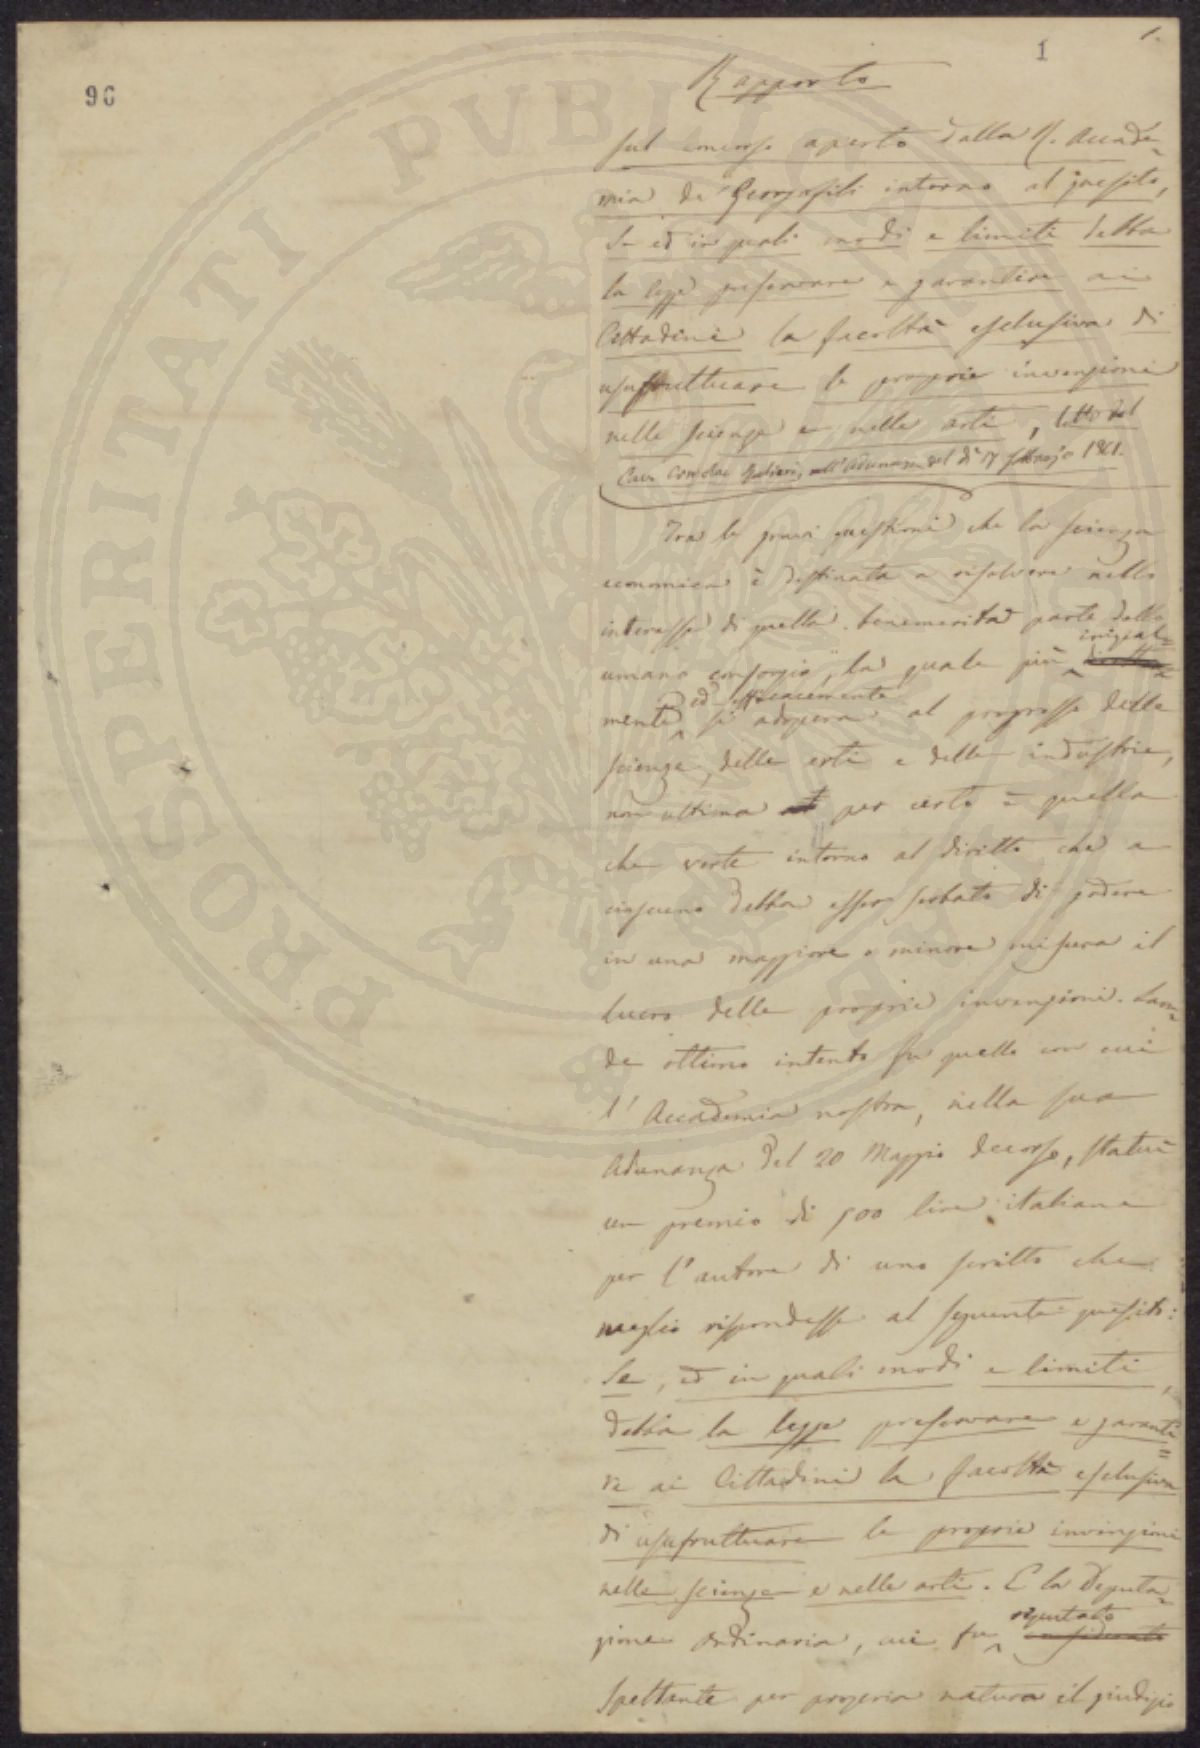 1.
1
96
Rapporto
sul concorso aperto dalla R. Accade=
mia de' Georgofili intorno al quesito,
Se ed in quali modi e limiti debba
la legge preservare e garantire ai
Cittadini la facoltà esclusiva di
usufruttuare le proprie invenzioni
nelle scienze e nelle arti, letto dal
Cav. nell'Adunanza del dì 17 febbrajo 1861.
Tra le gravi questioni che la scienza
economica è destinata a risolvere nello
interesse di quella benemerita parte dello
umano consorzio, la quale più
mente ed efficacemente si adopera al progresso delle
scienze, delle arti e delle industrie,
non ultima per certo è quella
che verte intorno al diritto che a
ciascuno debba esser serbato di godere
in una maggiore o minore misura il
lucro delle proprie invenzioni. Laon=
de ottimo intento fu quello con cui
l'Accademia nostra, nella sua
Adunanza del 20 Maggio decorso, statuì
un premio di 500 lire italiane
per l'autore di uno scritto che
meglio rispondesse al seguente quesito:
Se, ed in quali modi e limiti,
debba la legge preservare e garanti=
re ai Cittadini la facoltà esclusiva
di usufruttuare le proprie invenzioni
nelle scienze e nelle arti. E la Deputa=
zione ordinaria, cui fu reputato considerato
spettante per propria natura il giudizio
PROSPERITATI PVBLICAE